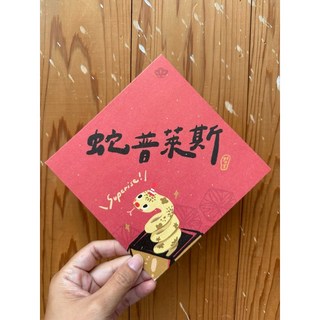 蛇普萊斯
Suprise!